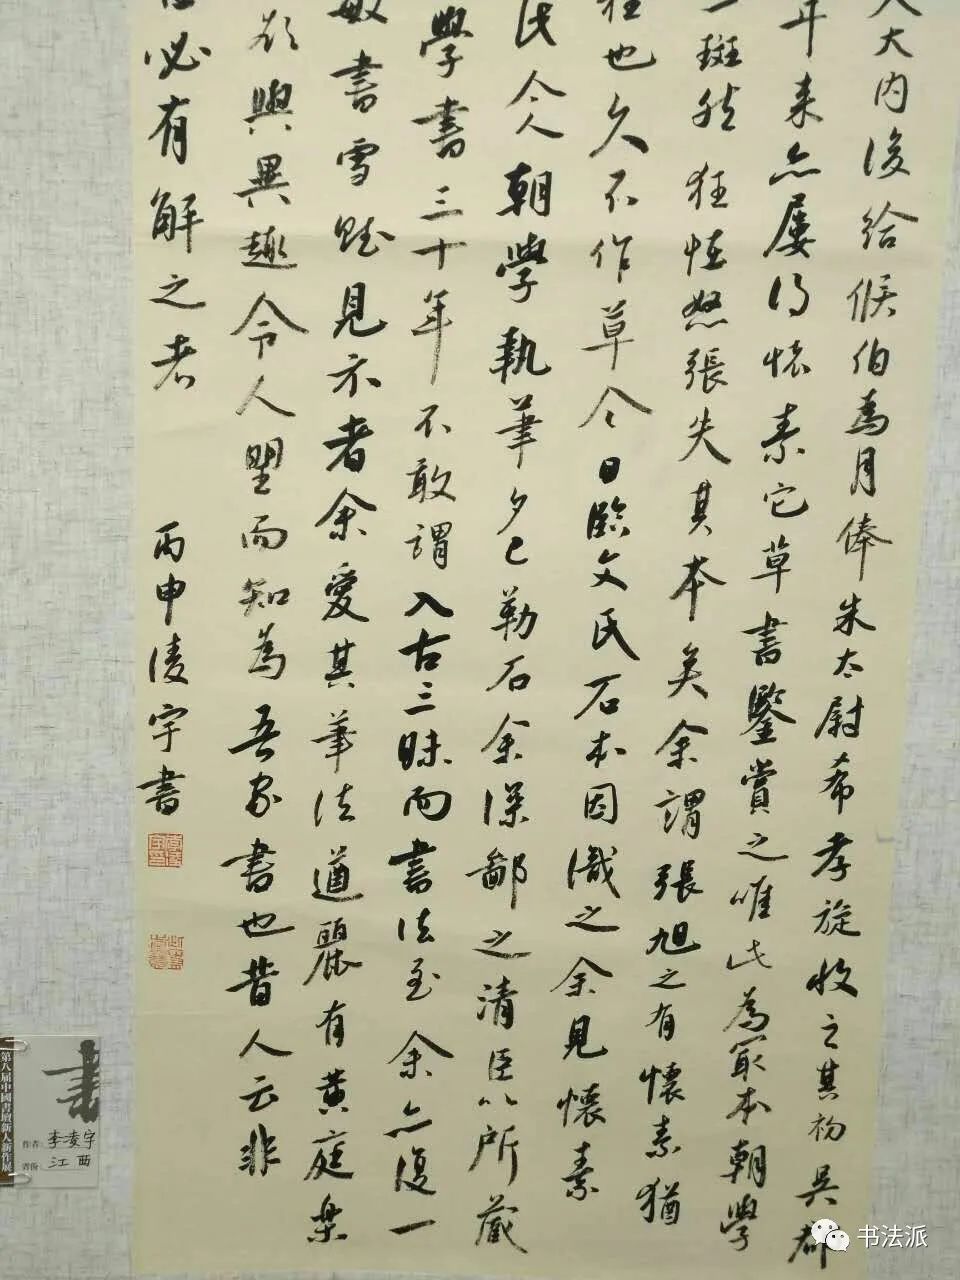 大内後給侯伯為月俸朱太尉希孝旋收之其初吳郡
年来亦屢得懷素它草書鑒賞之唯此為冣本朝學
一斑然狂怪怒張失其本矣余謂張旭之有懷素猶
狂也久不作草今日臨文氏石本因識之余見懷素
氏今人朝學執筆夕已勒石余深鄙之清臣以所藏
學書三十年不敢謂入古三昧而書法至余亦復一
敏書雪賦見示者余愛其筆法遒麗有黄庭樂
欲與異趣令人望而知為吾家書也昔人云非
必有解之者
丙申凌宇書
第八届中國書壇新人新作展
書
作者: 李凌宇
省份: 江西
书法派